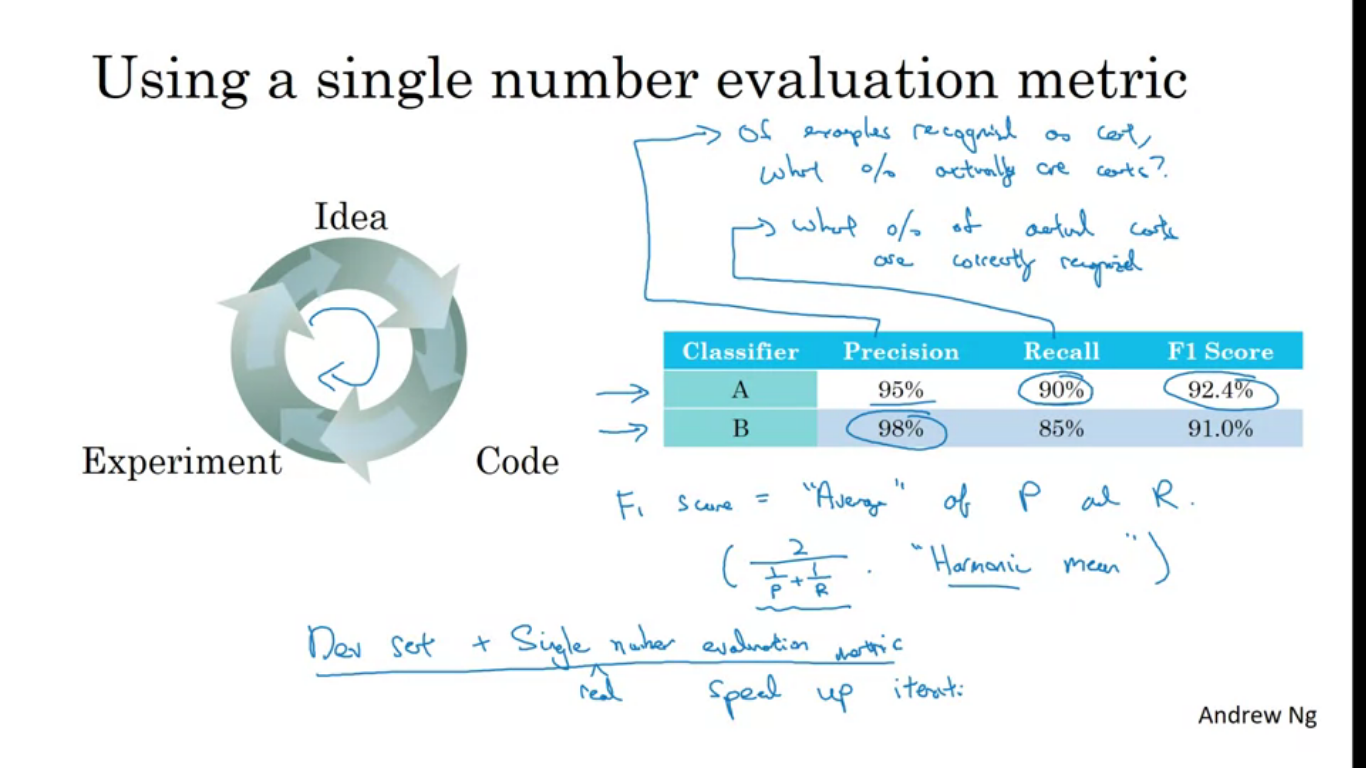 Using a single number evaluation metric
Of examples recognized as cat,
what % actually are cats?
what % of actual cats
are correctly recognized
Idea
Experiment
Code
Classifier Precision Recall F1 Score
A 95% 90% 92.4%
B 98% 85% 91.0%
F₁ score = "Average" of P and R.
( 2 / (1/P + 1/R) . "Harmonic mean" )
Dev set + Single number evaluation metric
real speed up iterati
Andrew Ng